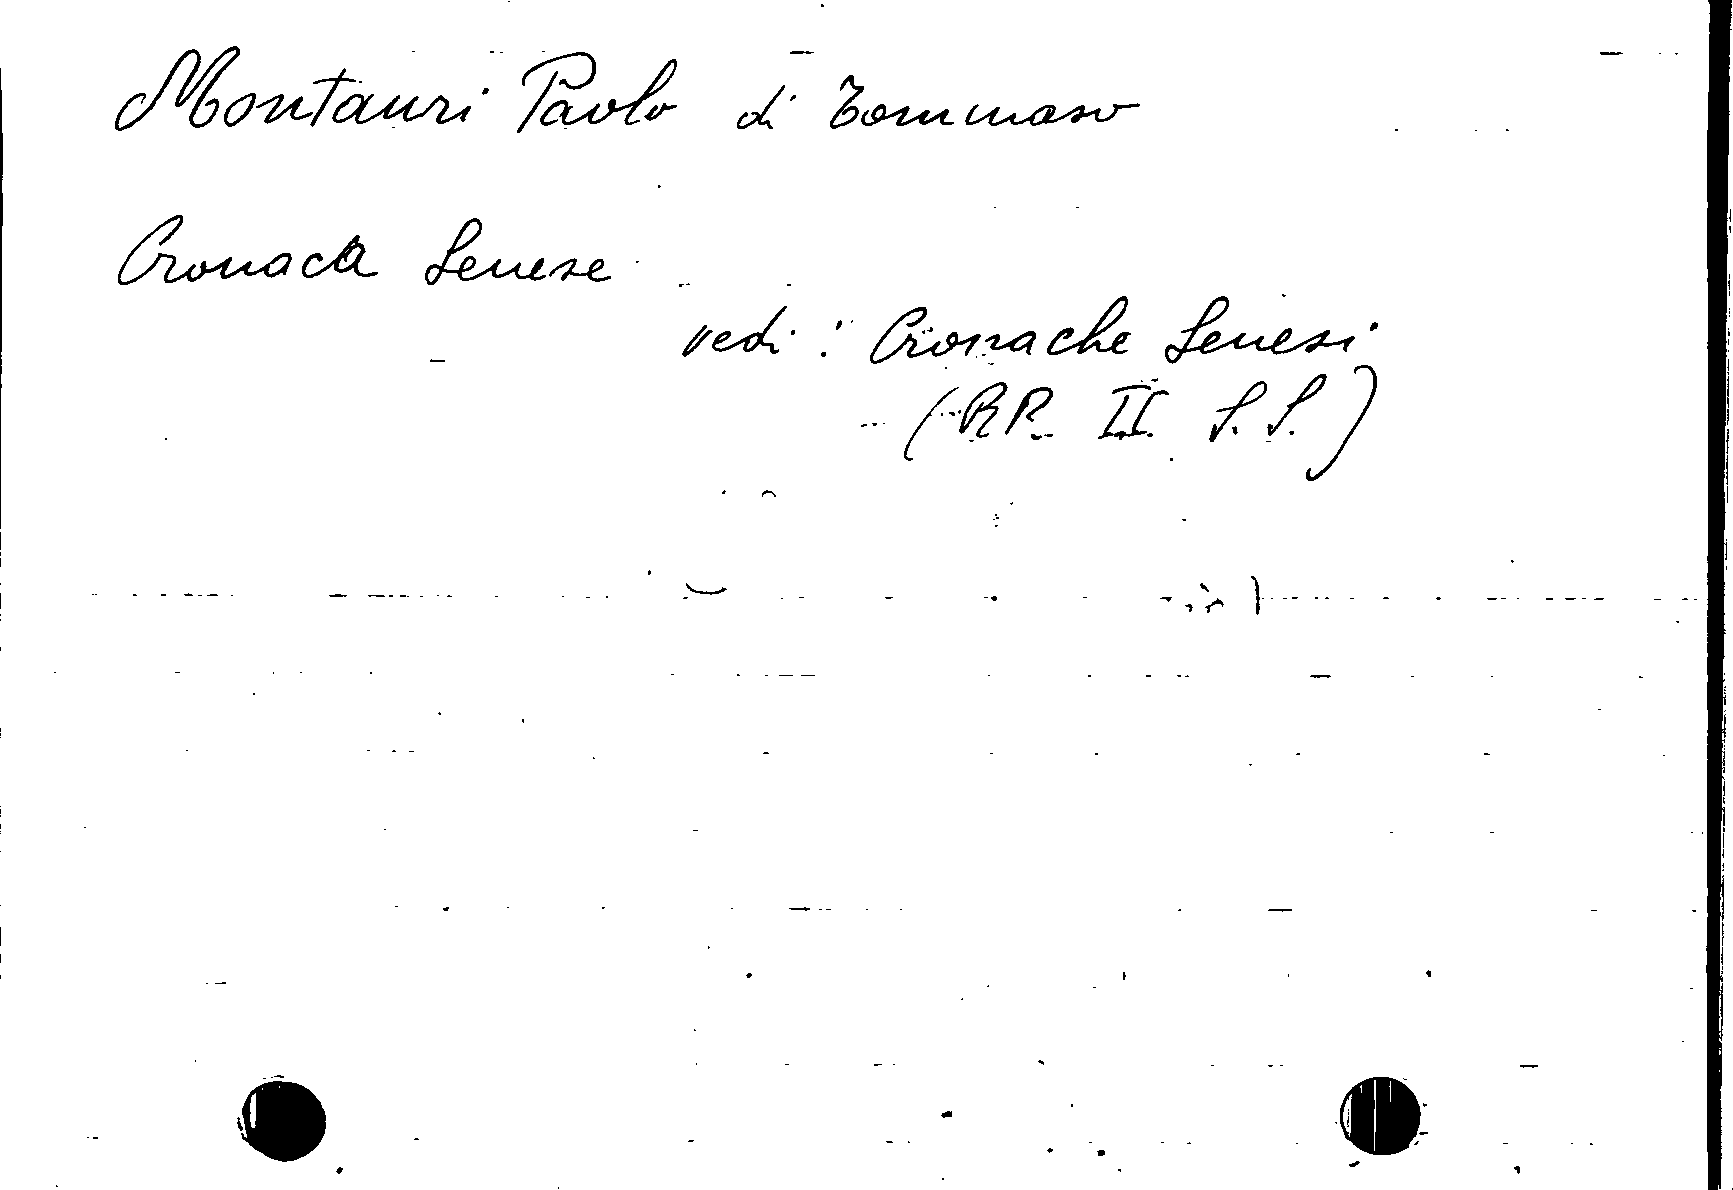 Montauri Paolo di Tommaso
Cronaca Senese
vedi: Cronache Senesi
(RR. II. S.S.)